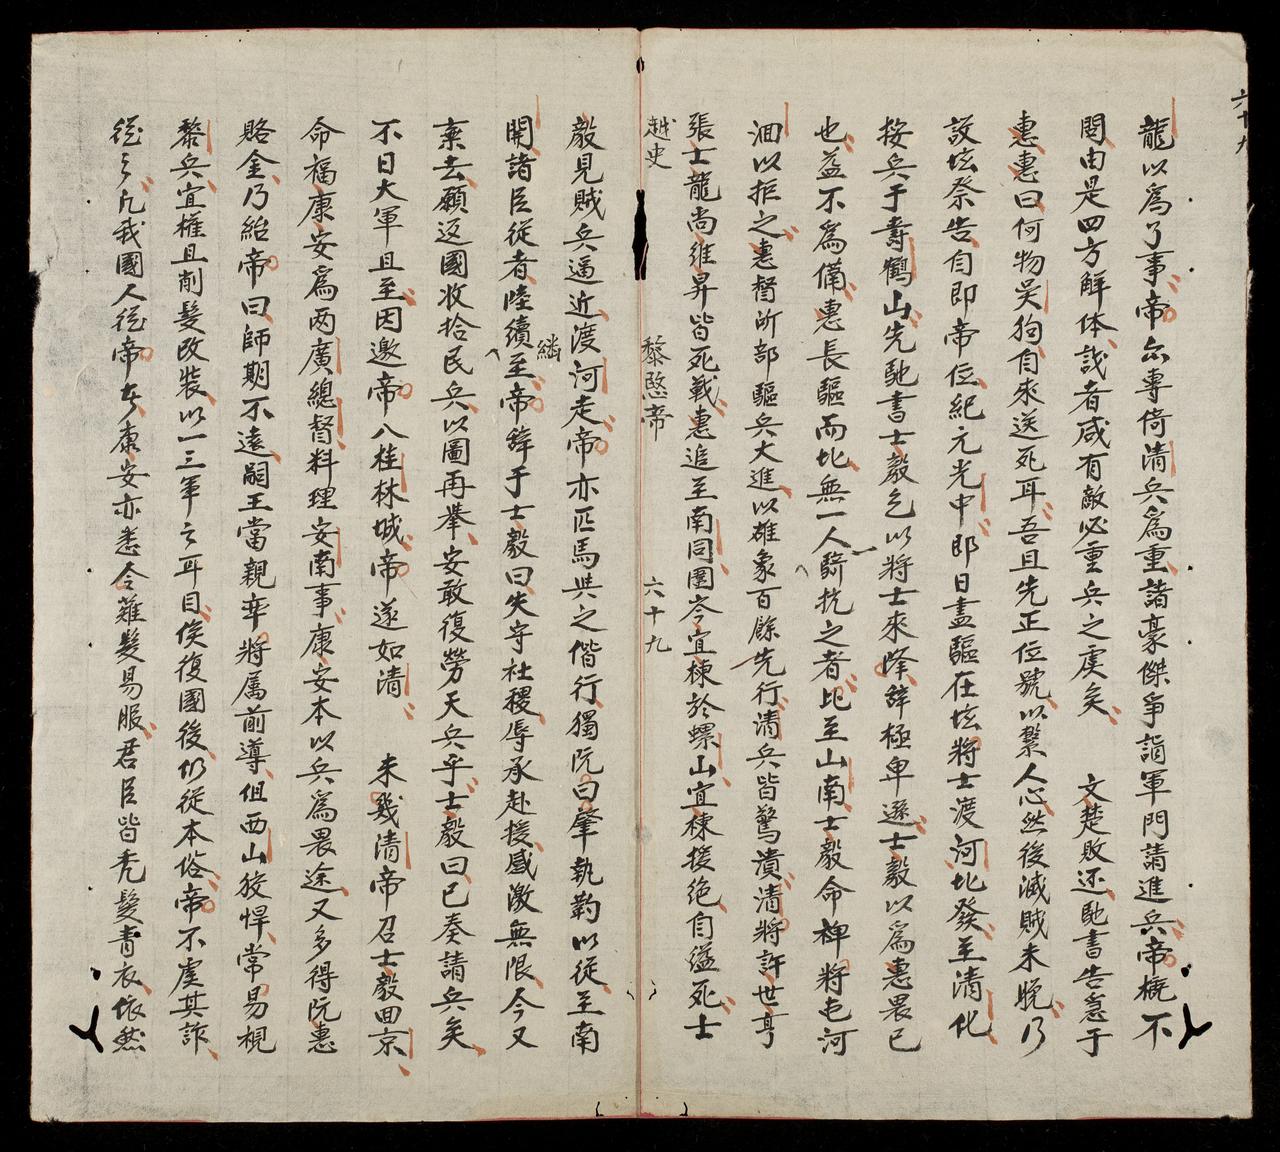 六十九
龍以爲了事帝亦專倚清兵爲重諸豪傑爭詣軍門請進兵帝概不
問由是四方解体識者咸有敵必重兵之虞矣　文楚敗还馳書告急于
惠惠曰何物吳狗自來送死耳吾且先正位號以繫人心然後滅賊未晚乃
設坛祭告自即帝位紀元光中即日盡驅在坛將士渡河北發至清化
按兵于壽鶴山先馳書士毅乞以將士來降辞極卑遜士毅以爲惠畏己
也益不爲備惠長驅而北無一人騎抗之者比至山南士毅命裨將屯河
洄以拒之惠督所部驅兵大進以雄象百餘先行清兵皆驚潰清將許世亨
張士龍尚維昇皆死戰惠追至南同圍岑宜棟於螺山宜棟援絶自縊死士
越史　黎愍帝　六十九
毅見賊兵逼近渡河走帝亦匹馬與之偕行獨阮曰肇執靮以從至南
関諸臣從者陸續
繼
至帝辞于士毅曰失守社稷辱承赴援感激無限今又
棄去願返國收拾民兵以圖再舉安敢復勞天兵乎士毅曰已奏請兵矣
不日大軍且至因邀帝入桂林城帝遂如清　未幾清帝召士毅回京
命福康安爲两廣總督料理安南事康安本以兵爲畏途又多得阮惠
賂金乃紿帝曰師期不遠嗣王當親率將属前導但西山狡悍常易視
黎兵宜權且削髮改裝以一三軍之耳目俟復國後仍從本俗帝不虞其詐
從之凡我國人從帝在康安亦悉令薙髮易服君臣皆禿髮青衣依然